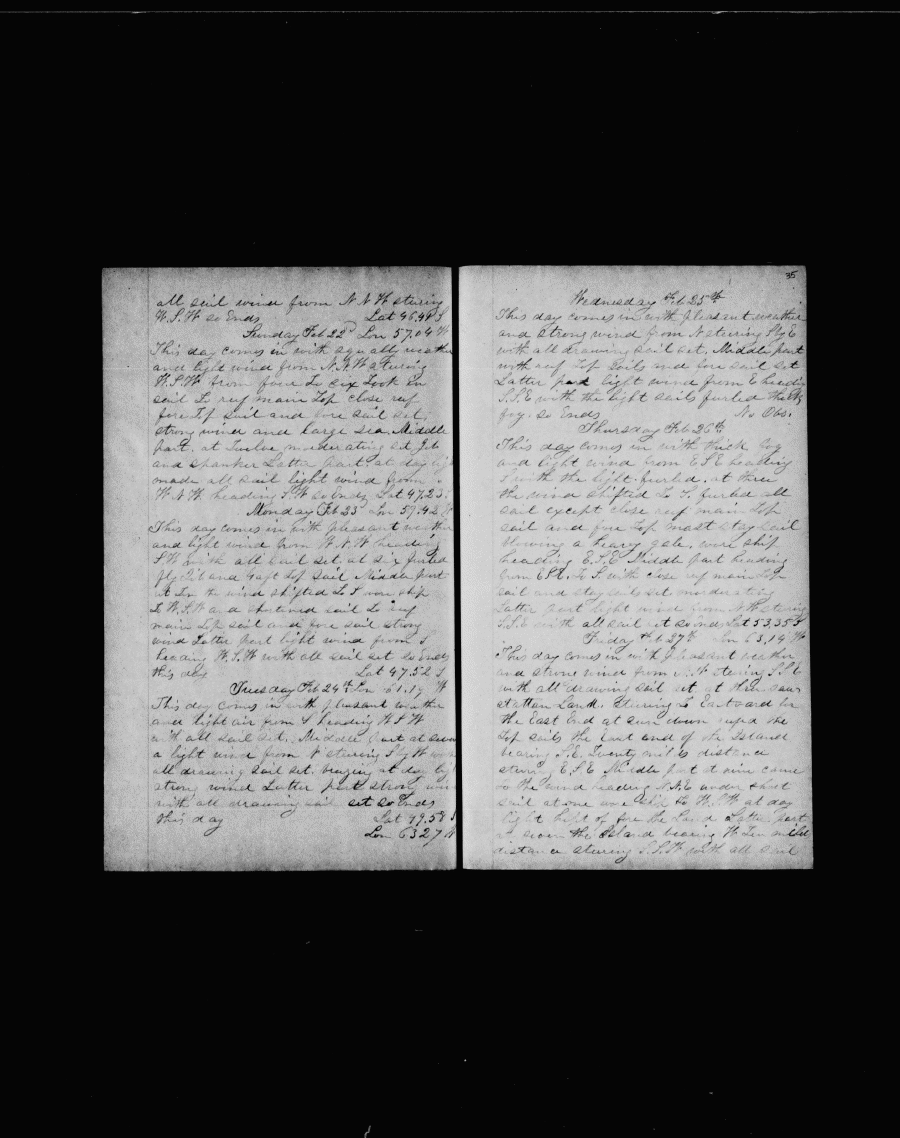 all sail wind from N N W stering
W.S.W so Ends Lat 46.48 S
Sunday Feb 22 Lon 57.04 W
This day comes in with squally weather
and light wind from N.N.W stering
W.S.W from four to six Took in
sail to reef main Top close reef
fore Top sail and fore sail set,
strong wind and large sea. Middle
part. at Twelve moderating set Jib
and spanker Latter part. at day
made all sail light wind from
W.N.W. heading S.W so Ends Lat 47.23
Monday Feb 23 Lon 59.42 W
This day comes in with pleasant weather
and light wind from W.N.W heading
S.W with all sail set. at six furled
fly Jib and gaft Top sail Middle part
at Ten the wind shifted to S wore ship
to W.S.W and shortened sail to reef
main Top sail and fore sail strong
wind Latter part light wind from S
heading W.S.W with all sail set so Ends
this day Lat 47.52 S
Tuesday Feb 24th Lon 61.19 W
This day comes in with pleasant weather
and light air from S heading W S W
with all sail set. Middle part at seven
a light wind from N stering S by W
all drawing sail set. at day
strong wind Latter part strong wind
with all drawing sail set so Ends
this day Lat 49.58 S
Lon 63 27 W
35
Wednesday Feb 25th
This day comes in with pleasant weather
and strong wind from N stering S by E
with all drawing sail set. Middle part
with reef Top sails and fore sail set
Latter part light wind from E heading
S.S.E with the light sails furled thick
fog. so Ends No Obs.
Thursday Feb 26th
This day comes in with thick fog
and light wind from E S E heading
S with the light furled. at three
the wind shifted to S. furled all
sail except close reef main Top
sail and fore Top mast stay sail
blowing a heavy gale. wore ship
heading E.S.E Middle part heading
from ESE. to S. with close reef main Top
sail and stay sails set morderating
Latter part light wind from N.W stering
S.S.E with all sail set so Ends Lat 53.35 S
Friday Feb 27th Lon 63.14 W
This day comes in with pleasant weather
and strong wind from stering S.S.E
with all drawing sail set at three saw
statton Land. Stering to Eastward for
the East End at sun down the
Top sails the East end of the Island
bearing S.E. Twenty miles distance
stering E.S.E Middle part at nine came
to the wind heading N.N.E under short
sail at one wore ship to W.S.W at day
light kept of for the Land Latter part
at seven the Island bearing W Ten miles
distance stering S.S.W with all sail